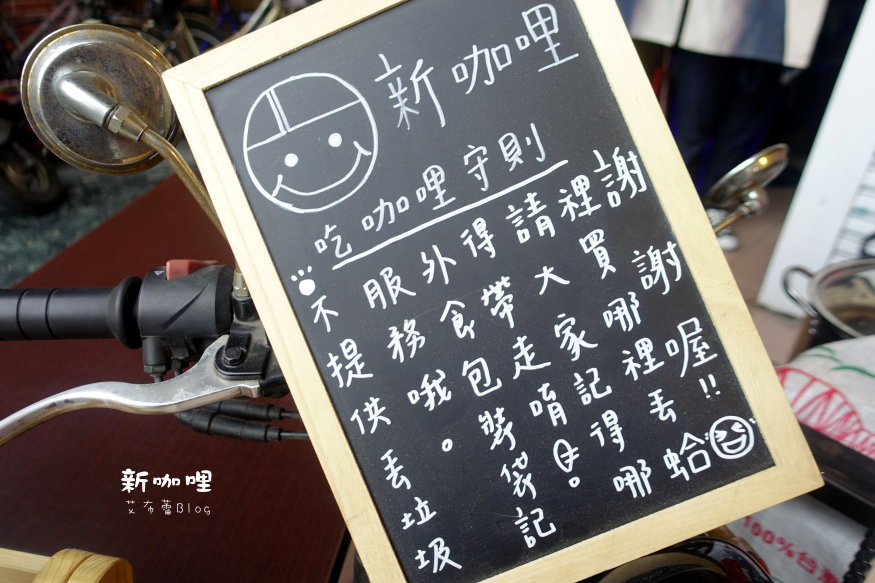 新咖哩
吃咖哩守則
不提供丟垃圾
服務哦。
外食包裝袋記
得帶走唷。
請大家記得哪
裡買哪裡丟蛤
謝謝喔!!
新咖哩
艾布蕾Blog
100%台